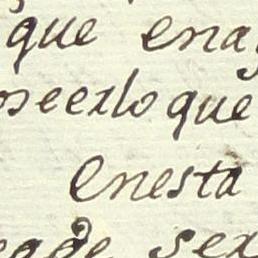 que ena
oseexloque
Enesta